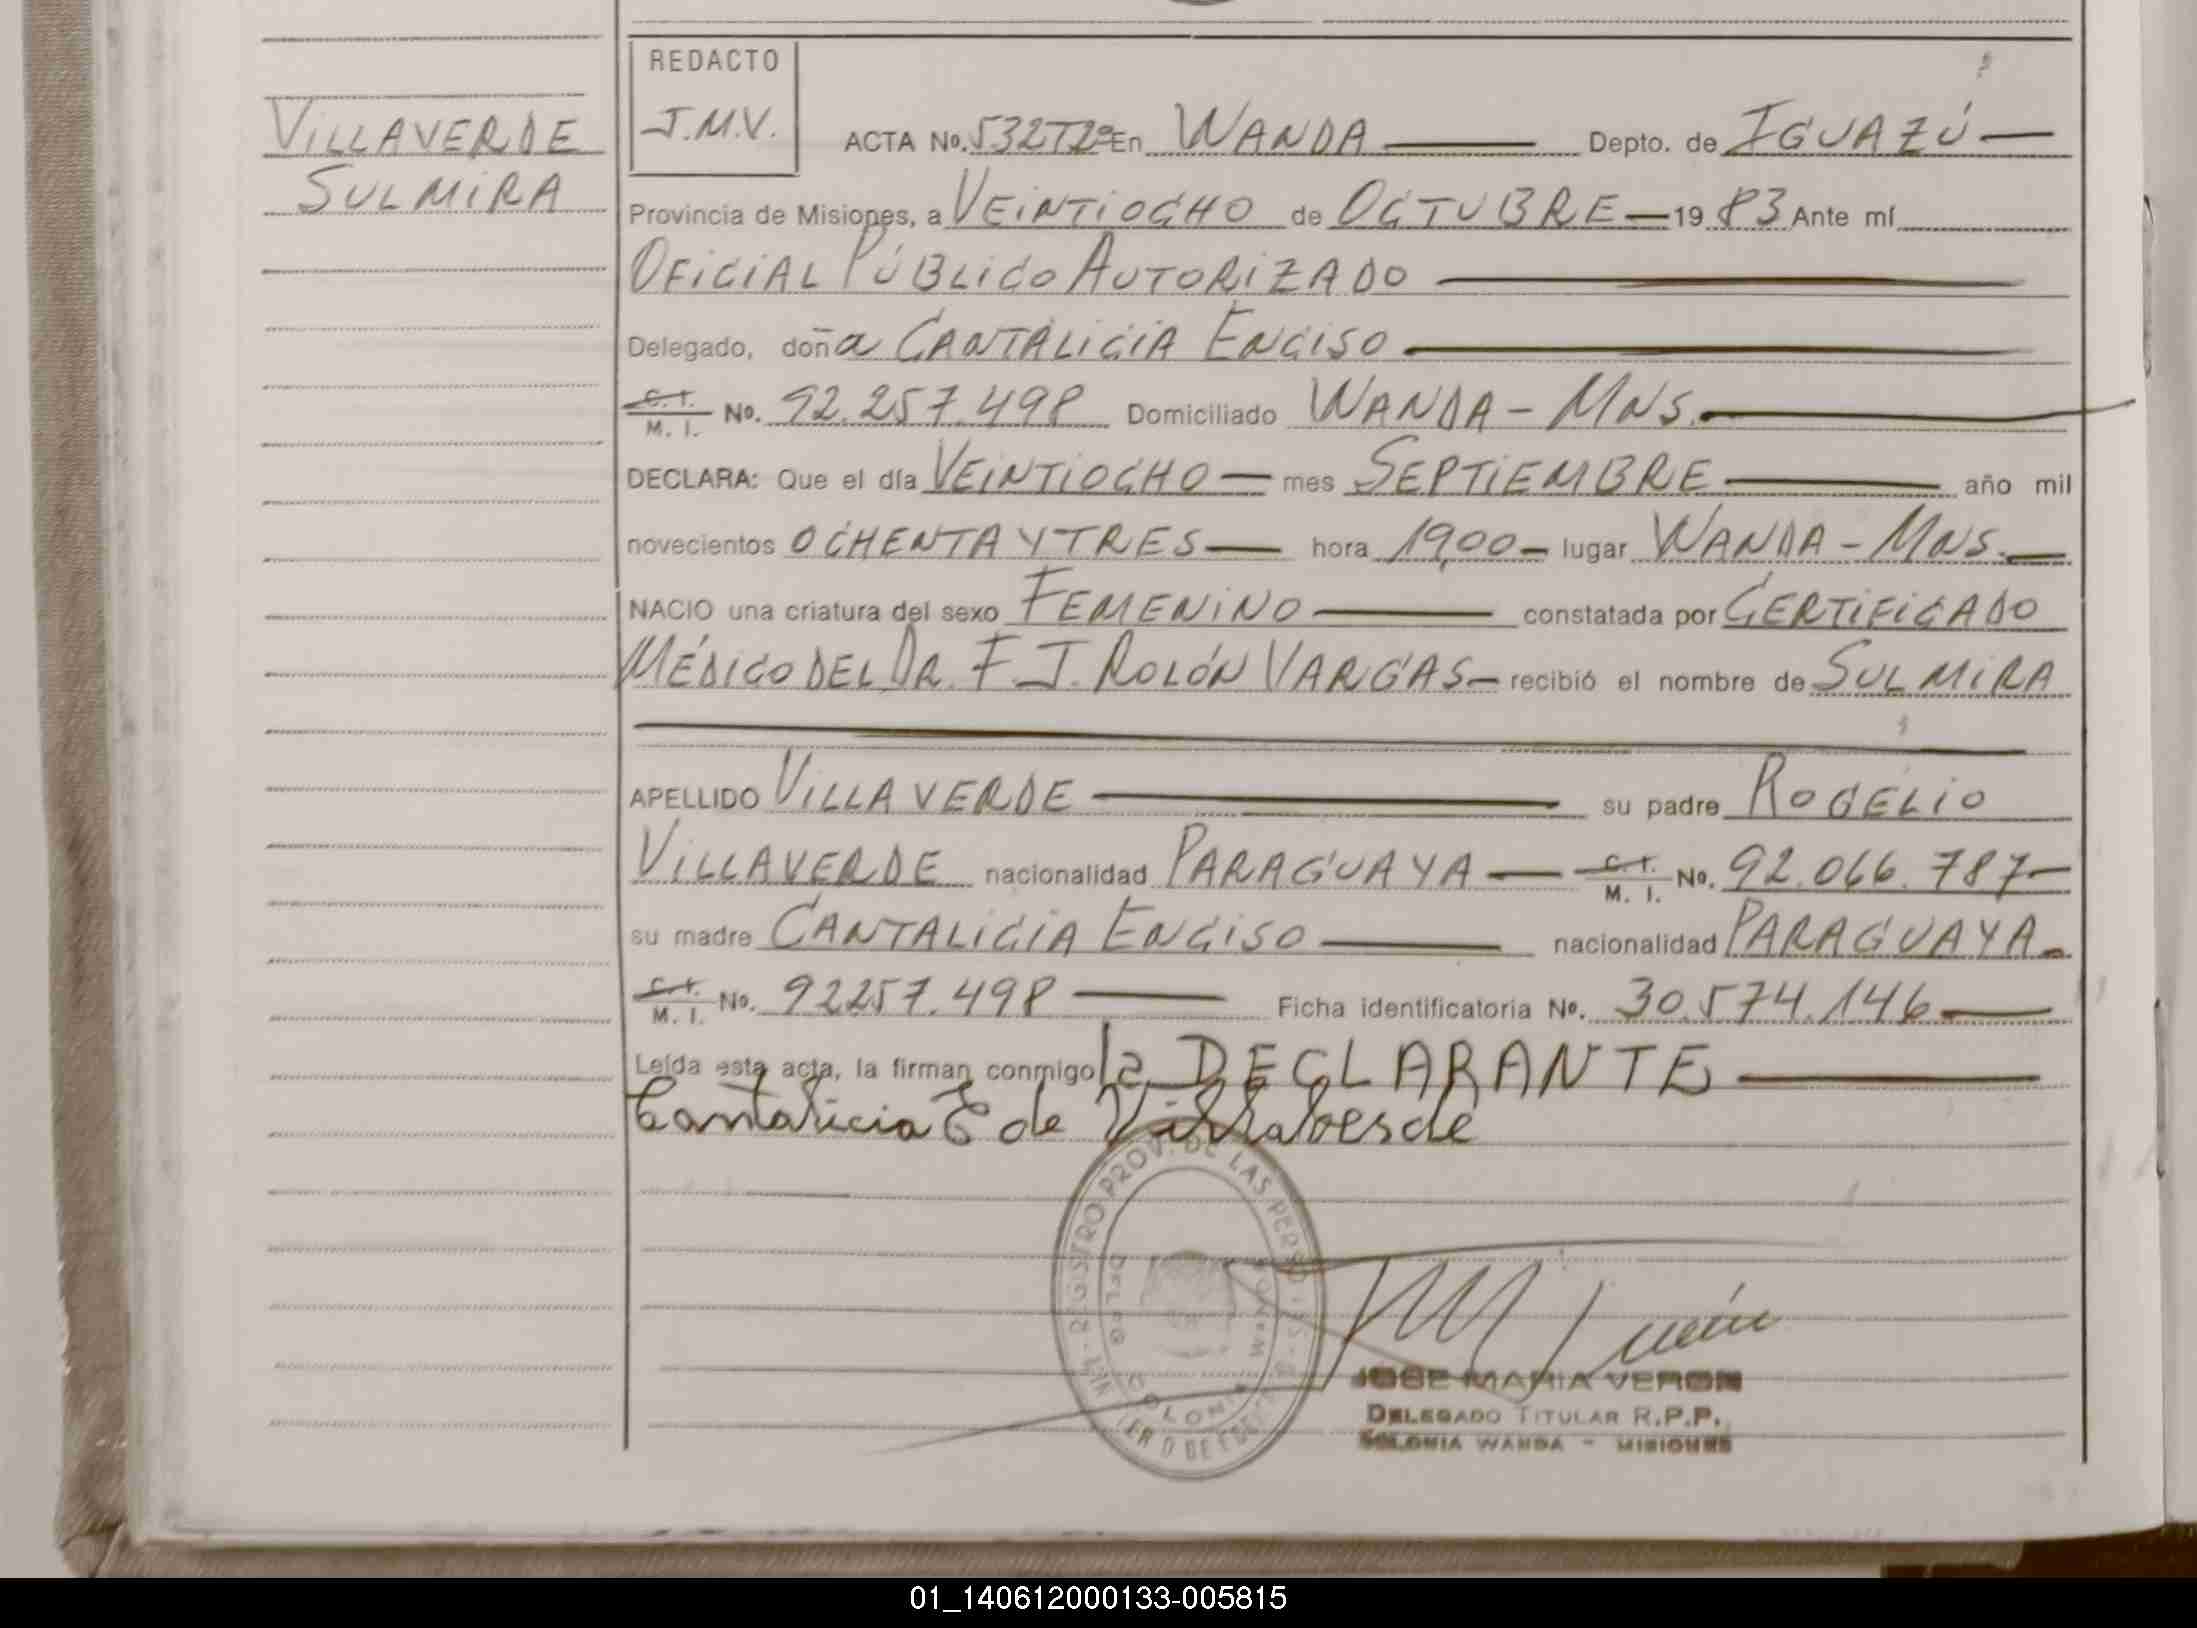 VILLAVERDE
SULMIRA
REDACTO
J.M.V.
ACTA No. 532T2º En WANDA Depto. de IGUAZÚ
Provincia de Misiones, a VEINTIOCHO de OCTUBRE 19 83 Ante mí
OFICIAL PÚBLICO AUTORIZADO
Delegado, doña CANTALICIA ENCISO
C.I. M. I. No. 92.257.498 Domiciliado WANDA - MNS.
DECLARA: Que el día VEINTIOCHO mes SEPTIEMBRE año mil
novecientos OCHENTA Y TRES hora 19,00 lugar WANDA - MNS.
NACIO una criatura del sexo FEMENINO constatada por CERTIFICADO
MÉDICO DEL DR. F. J. ROLÓN VARGAS recibió el nombre de SULMIRA
APELLIDO VILLAVERDE su padre ROGELIO
VILLAVERDE nacionalidad PARAGUAYA C.I. M. I. No. 92.066.787
su madre CANTALICIA ENCISO nacionalidad PARAGUAYA
C.I. M. I. No. 92257.498 Ficha identificatoria No. 30.574.146
Leída esta acta, la firman conmigo la DECLARANTE
Cantalicia E de Villabesde
REGISTRO PROV. DE LAS PERSONAS
COLONIA
JOSE MARIA VERON
DELEGADO TITULAR R.P.P.
COLONIA WANDA - MISIONES
01_140612000133-005815